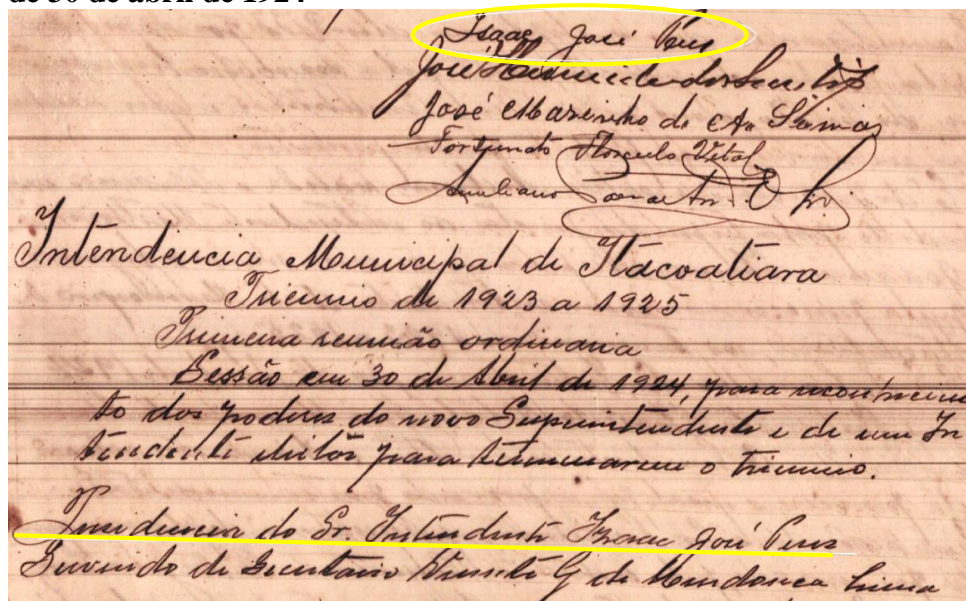 de 30 de abril de 1924
Isaac José Peres
José
José Marinho de A. Lima
Fortunato Vital
Intendencia Municipal de Itacoatiara
Triennio de 1923 a 1925
Primeira reunião ordinaria
Sessão em 30 de Abril de 1924, para reconhecimen
to dos poderes do novo Superintendente e de um In
tendente eleitos para terminarem o triennio.
Presidencia do Sr. Intendente Isaac José Peres
Servindo de Secretario G. de Mendonca Lima